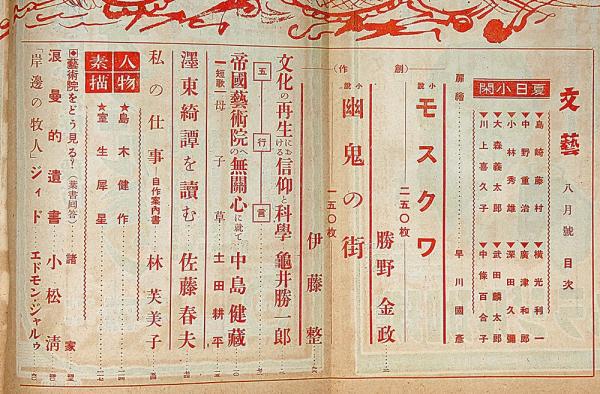 文藝 八月號 目次
夏日小閑
▼島崎藤村 ▼横光利一
▼中野重治 ▼廣津和郎
▼小林秀雄 ▼深田久彌
▼大森義太郎 ▼武田麟太郎
▼川上喜久子 ▼中條百合子
扉繪 早川國彥
(創作)
小說 モスクワ 二五〇枚 勝野金政
小說 幽鬼の街 一五〇枚 伊藤整
文化の再生に於ける信仰と科學 龜井勝一郎
五行言
帝國藝術院への無關心に就て 中島健藏
短歌 母子草 土田耕平
濹東綺譚を讀む 佐藤春夫
私の仕事 自作案內書 林芙美子
人物素描
★島木健作
★室生犀星
◉藝術院をどう見る?(葉書回答) 諸家
浪曼的遺書 小松淸
「岸邊の牧人」ジィド エドモン・ジャルゥ